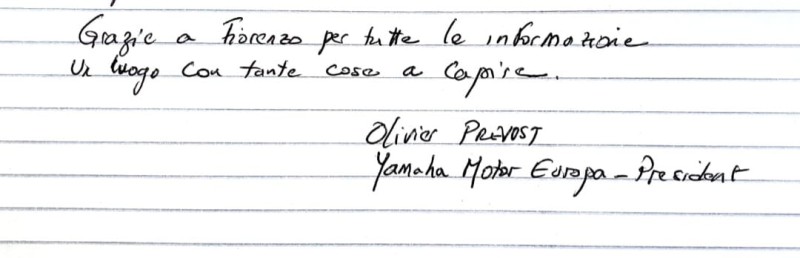 Grazie a Fiorenzo per tutte le informazioie
Un luogo con tante cose a Capire.
Olivier PREVOST
Yamaha Motor Europa - President